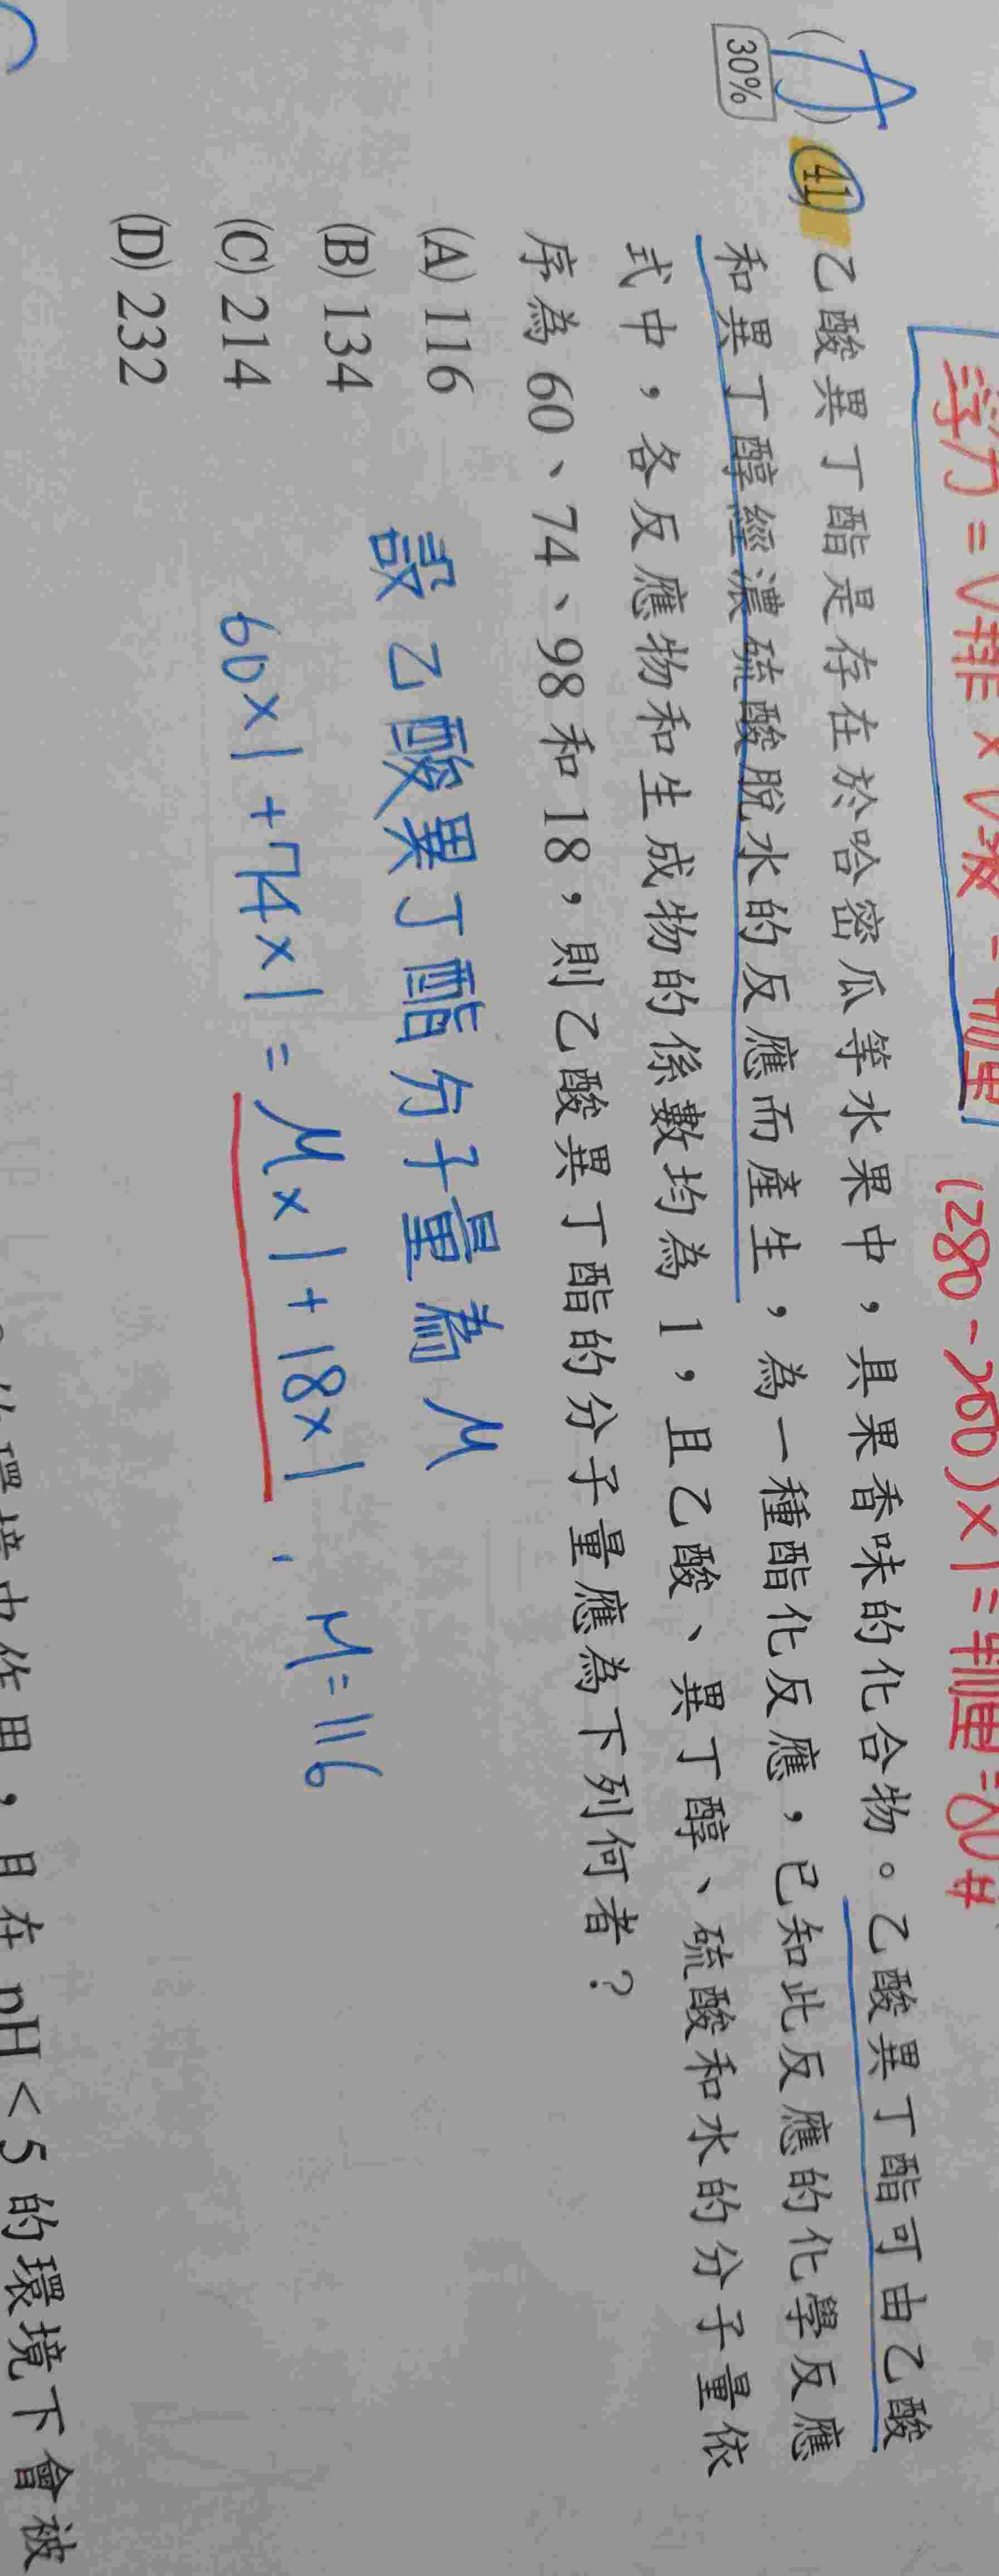 浮力=V排×D液=物重
(280-200)×1=排重=80#
(A)
30%
41 乙酸異丁酯是存在於哈密瓜等水果中,具果香味的化合物。乙酸異丁酯可由乙酸
和異丁醇經濃硫酸脫水的反應而產生,為一種酯化反應,已知此反應的化學反應
式中,各反應物和生成物的係數均為 1,且乙酸、異丁醇、硫酸和水的分子量依
序為 60、74、98 和 18,則乙酸異丁酯的分子量應為下列何者?
(A) 116
(B) 134
(C) 214
(D) 232
設乙酸異丁酯分子量為M
60×1+74×1=M×1+18×1, M=116
環境中作用,且在 pH<5 的環境下會被